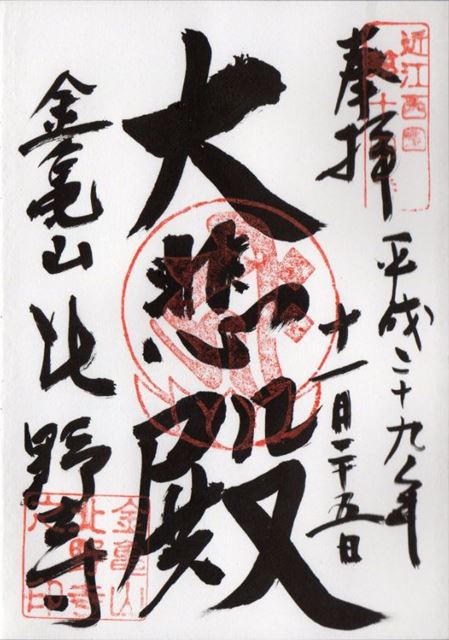 近江西国
奉拝
平成二十九年
十一月二十五日
大悲殿
金亀山 北野寺
金亀山
北野寺